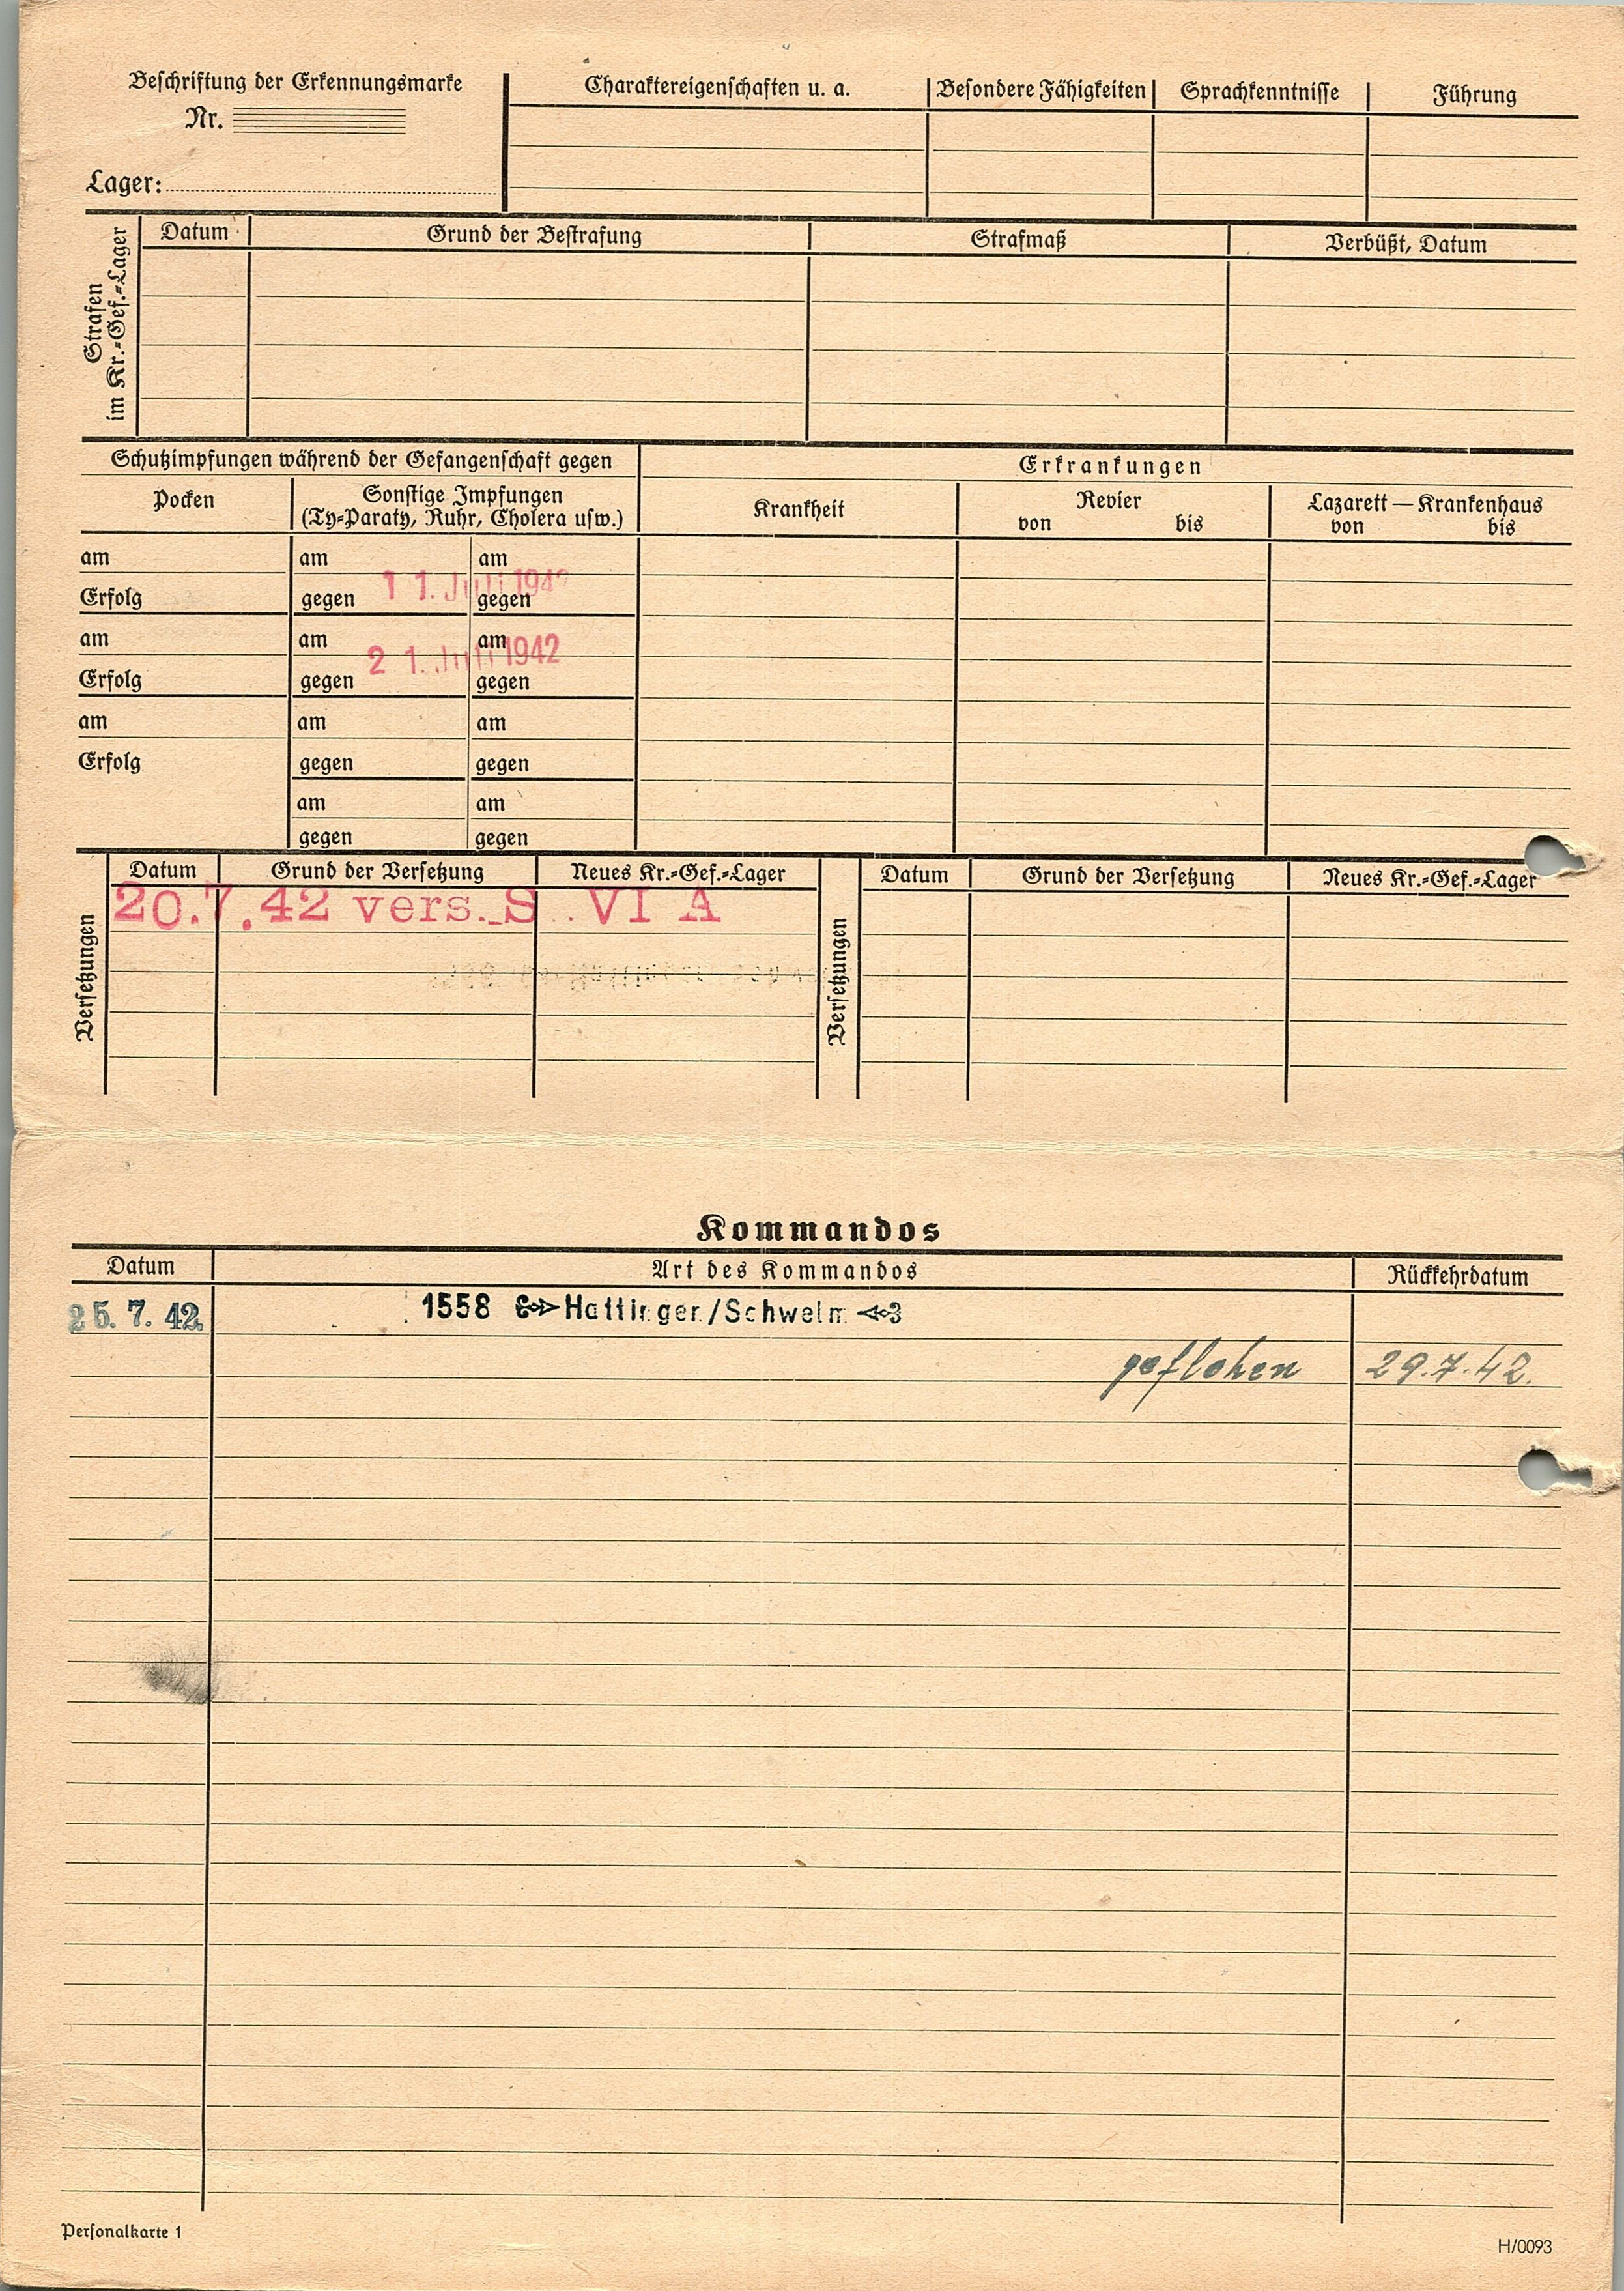 Beschriftung der Erkennungsmarke
Nr.
Lager:
Charaktereigenschaften u. a. Besondere Fähigkeiten Sprachkenntnisse Führung
Strafen
im Kr.=Gef.=Lager
Datum Grund der Bestrafung Strafmaß Verbüßt, Datum
Schutzimpfungen während der Gefangenschaft gegen
Erkrankungen
Pocken
Sonstige Impfungen
(Ty=Paraty, Ruhr, Cholera usw.)
Krankheit
Revier
von bis
Lazarett — Krankenhaus
von bis
am am am
11. Juli 1942
Erfolg gegen gegen
am am am
21. Juli 1942
Erfolg gegen gegen
am am am
Erfolg gegen gegen
am am
gegen gegen
Versetzungen
Datum Grund der Versetzung Neues Kr.=Gef.=Lager
20.7.42 vers. S VI A
Versetzungen
Datum Grund der Versetzung Neues Kr.=Gef.=Lager
Kommandos
Datum Art des Kommandos Rückkehrdatum
25. 7. 42. 1558 Hattingen/Schwelm
geflohen 29.7.42.
Personalkarte 1
H/0093